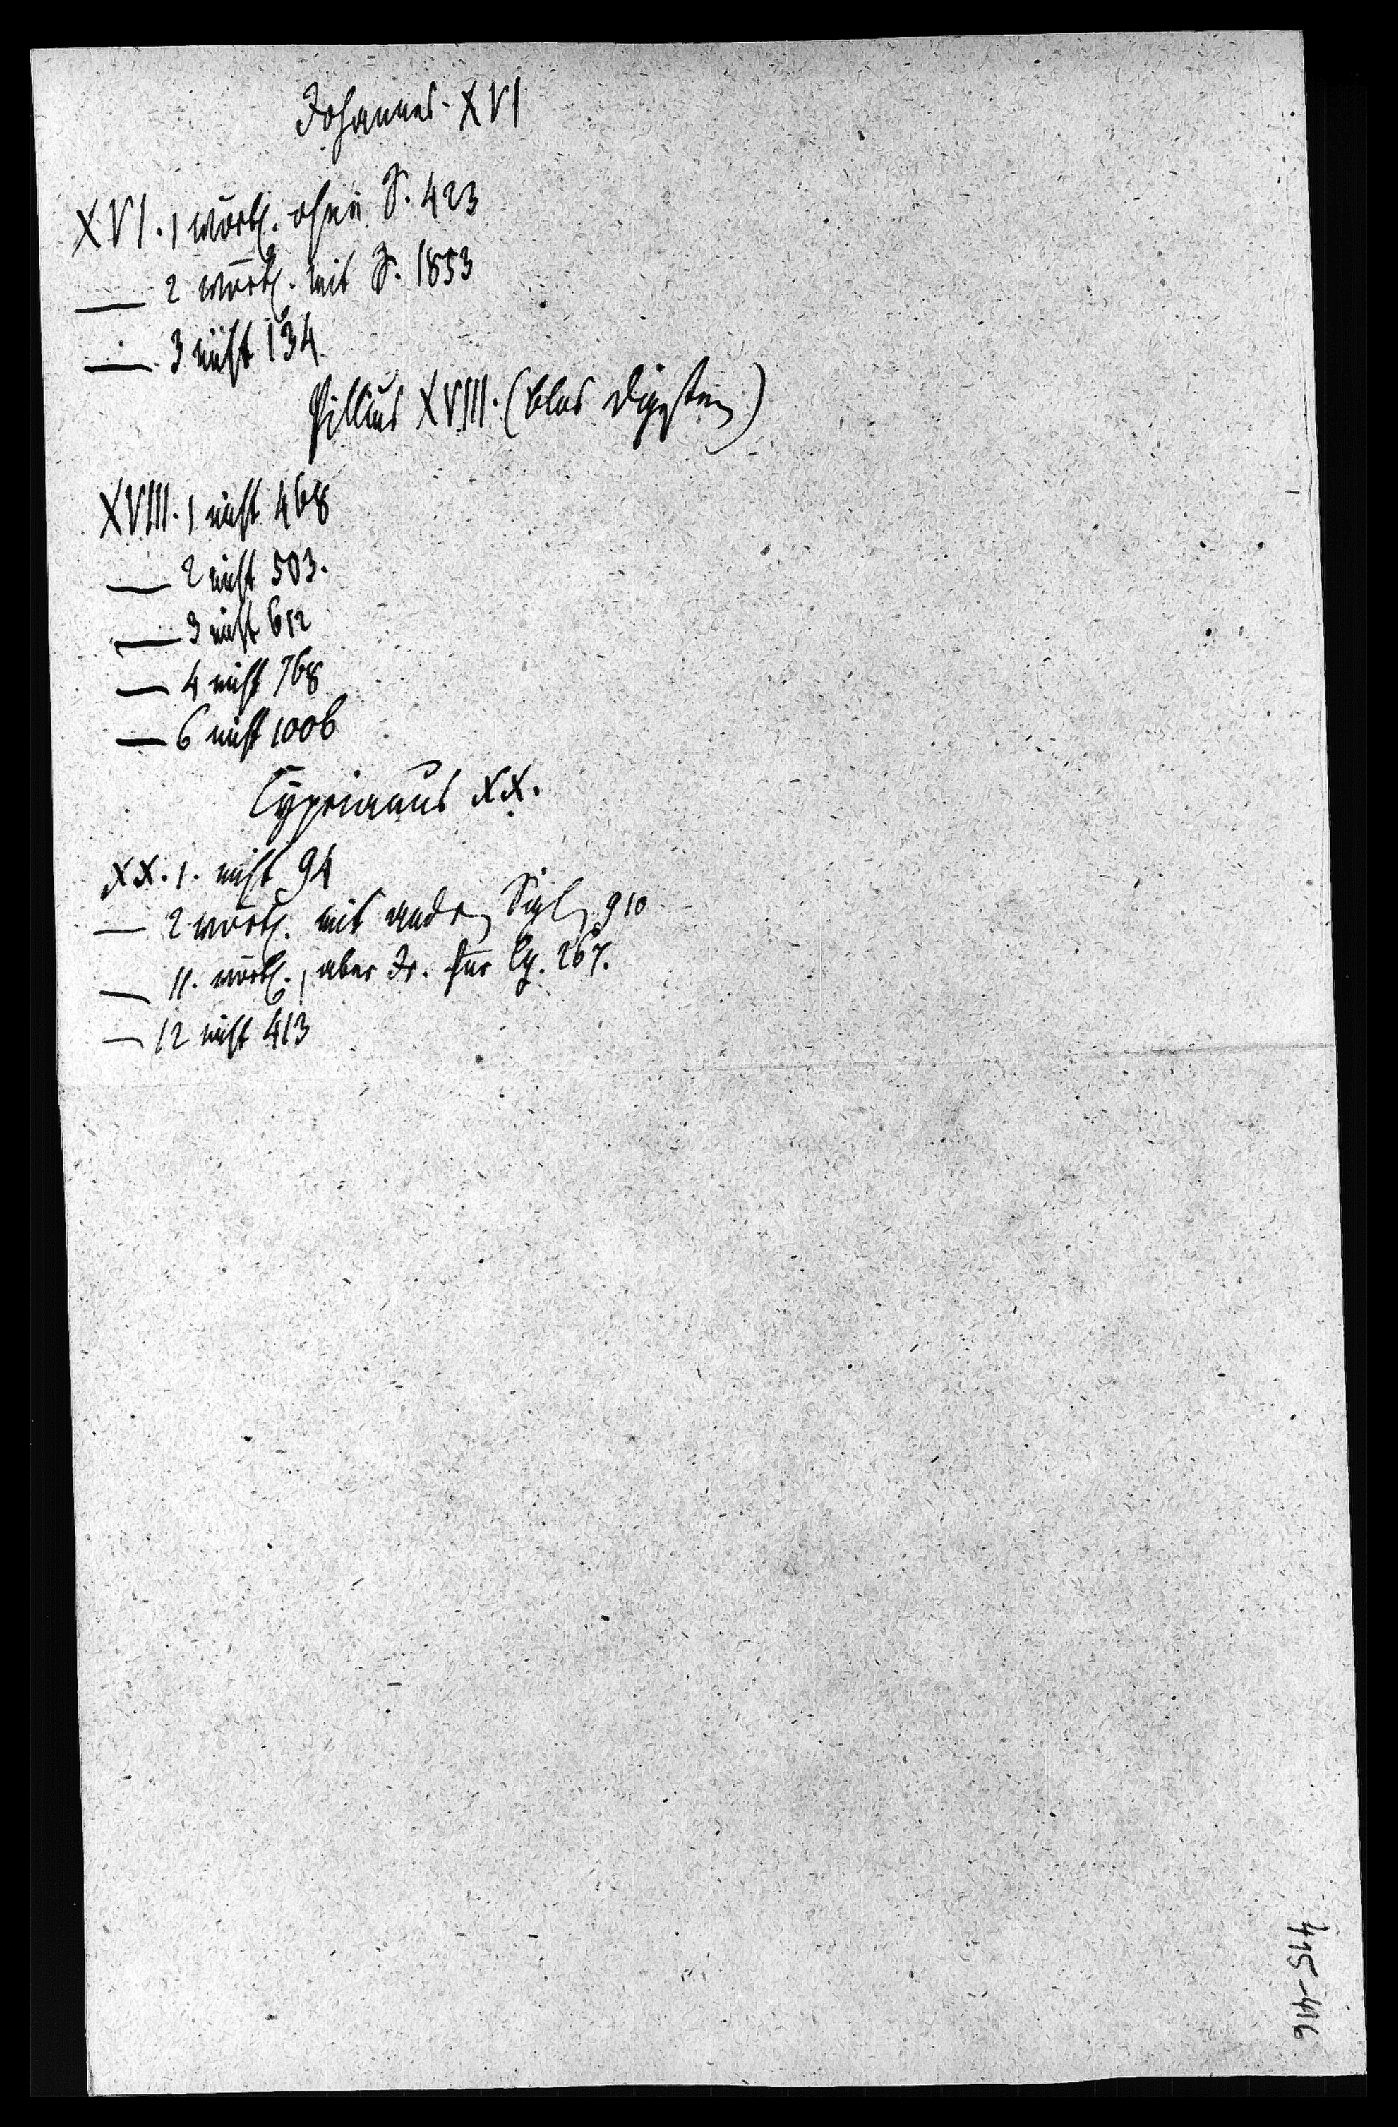 Johannes XVI
XVI. 1 wörtl. ohne S. 423
— 2 wörtl. mit S. 1853
— 3 nicht 134
Pillius XVIII. (blos Digesten)
XVIII. 1 nicht 468
— 2 nicht 503.
— 3 nicht 612
— 4 nicht 768
— 6 nicht 1006
Cyprianus XX.
XX. 1. nicht 94
— 2 wörtl. mit andrer Sigle 910
— 11. wörtl., aber Jo. für Cy. 267.
— 12 nicht 413
415-416